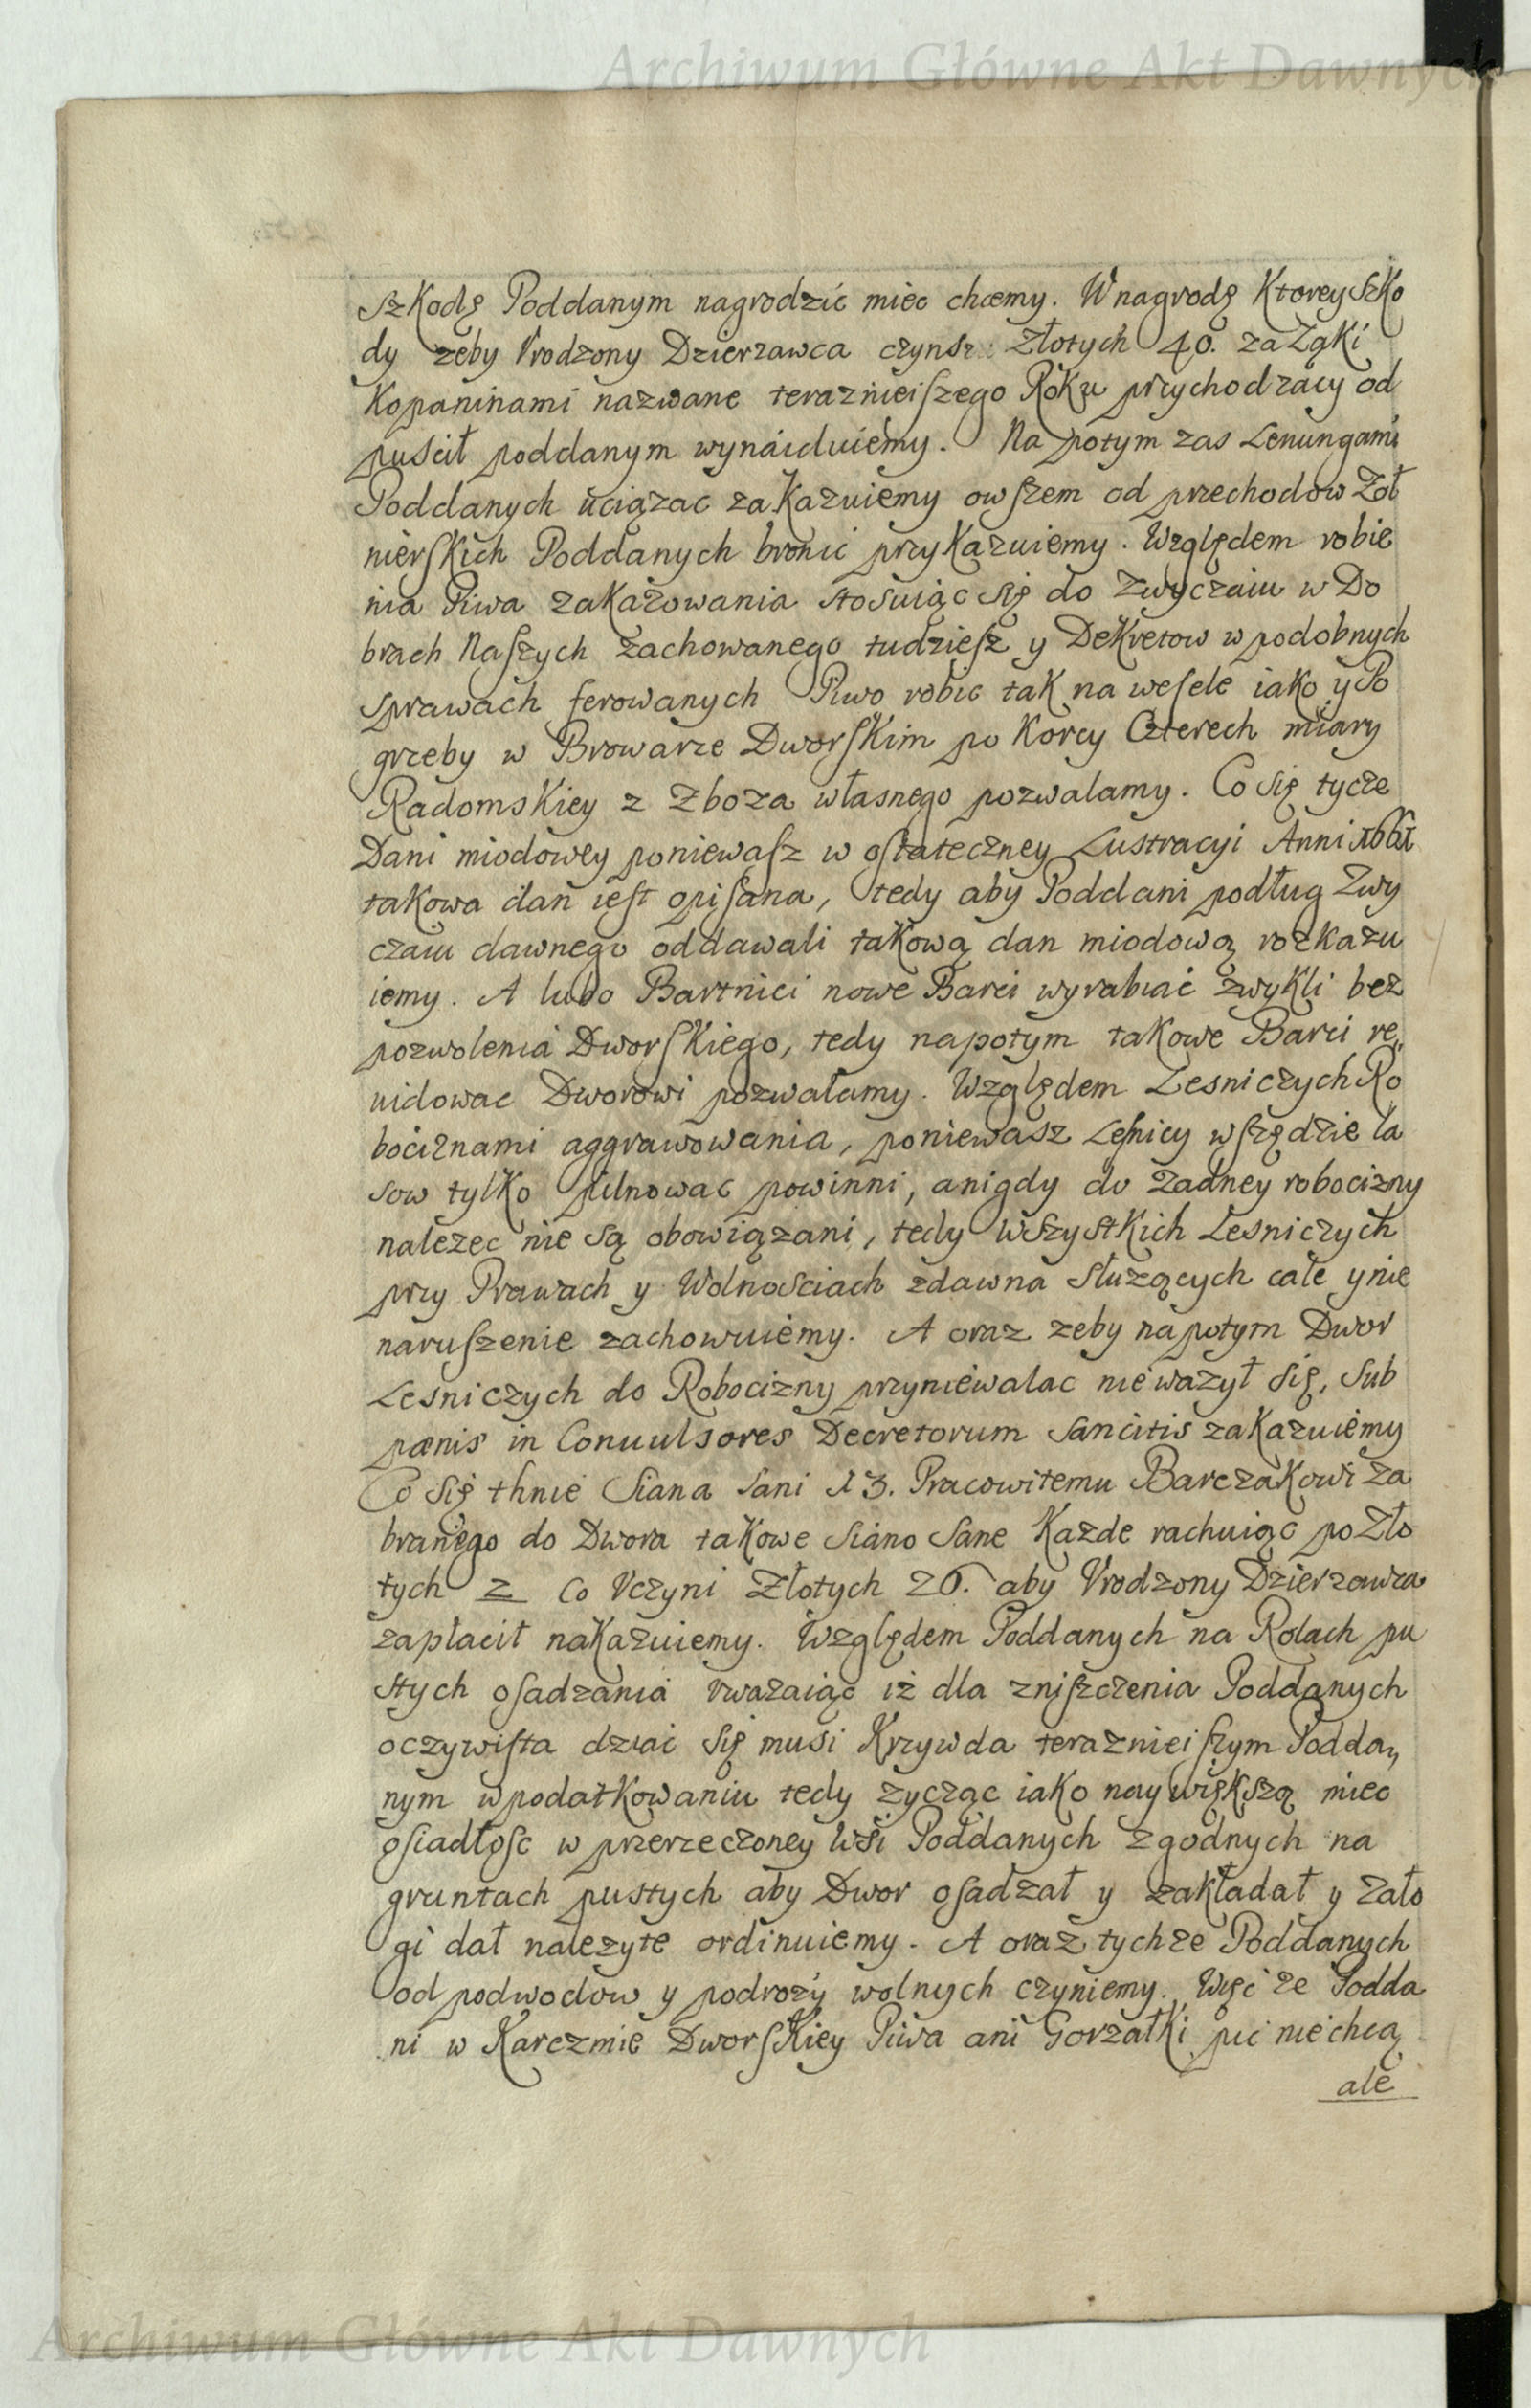 Archiwum Główne Akt Dawnych
szkodę Poddanym nagrodzić miec chcemy. W nagrodę Ktorey szko
dy zeby Vrodzony Dzierzawca czynsz Złotych 40. za Łąki
Kopaninami nazwane teraznieiszego Roku przychodzący od
puscił poddanym wynaiduiemy. Na potym zas Lenungami
Poddanych uciązac zakazuiemy owszem od przechodow Żoł
nierskich Poddanych bronic przykazuiemy. Względem robie
nia Piwa zakazowania stosuiąc się do zwyczaiu w Do
brach Naszych zachowanego tudziesz y Dekretow w podobnych
sprawach ferowanych Piwo robic tak na wesele iako y Po
grzeby w Browarze Dworskim po Korcy Czterech miary
Radomskiey z Zboza własnego pozwalamy. Co się tycze
Dani miodowey poniewasz w ostateczney Lustracyi Anni
takowa dań iest opisana, tedy aby Poddani podług Zwy
czaiu dawnego oddawali takową dan miodową rozkazu
iemy. A lubo Bartnici nowe Barci wyrabiać zwykli bez
pozwolenia Dworskiego, tedy napotym takowe Barci re„
uidowac Dworowi pozwalamy. Względem Lesniczych Ro
bociznami aggrawowania, poniewasz Lesnicy wszędzie la
sow tylko pilnowac powinni, a nigdy do Zadney robocizny
nalezec nie są obowiązani, tedy wszystkich Lesniczych
przy Prawach y Wolnosciach zdawna Słuzących cale y nie
naruszenie zachowuiemy. A oraz zeby napotym Dwor
Lesniczych do Robocizny przyniewalac nie wazył się, sub
pænis in Conuulsores Decretorum Sancitis zakazuiemy
Co się thnie Siana sani 13. Pracowitemu Barczakowi za
branego do Dwora takowe Siano Sane Kazde rachuiąc po Zło
tych 2 Co Vczyni Złotych 26. aby Vrodzony Dzierzawca
zapłacił nakazuiemy. Względem Poddanych na Rolach pu
stych osadzania Vwazaiąc iż dla zniszczenia Poddanych
oczywista dziać się musi Krzywda teraznieiszym Podda„
nym w podatkowaniu tedy zycząc iako naywiększą miec
osiadłosc w przerzeczoney Wsi Poddanych zgodnych na
gruntach pustych aby Dwor osadzał y zakładał y Zało
gi dał nalezyte ordinuiemy. A oraz tychze Poddanych
od podwodow y podrozy wolnych czyniemy. Więc ze Podda
ni w Karczmie Dworskiey Piwa ani Gorzałki pić nie chcą
ale
Archiwum Główne Akt Dawnych